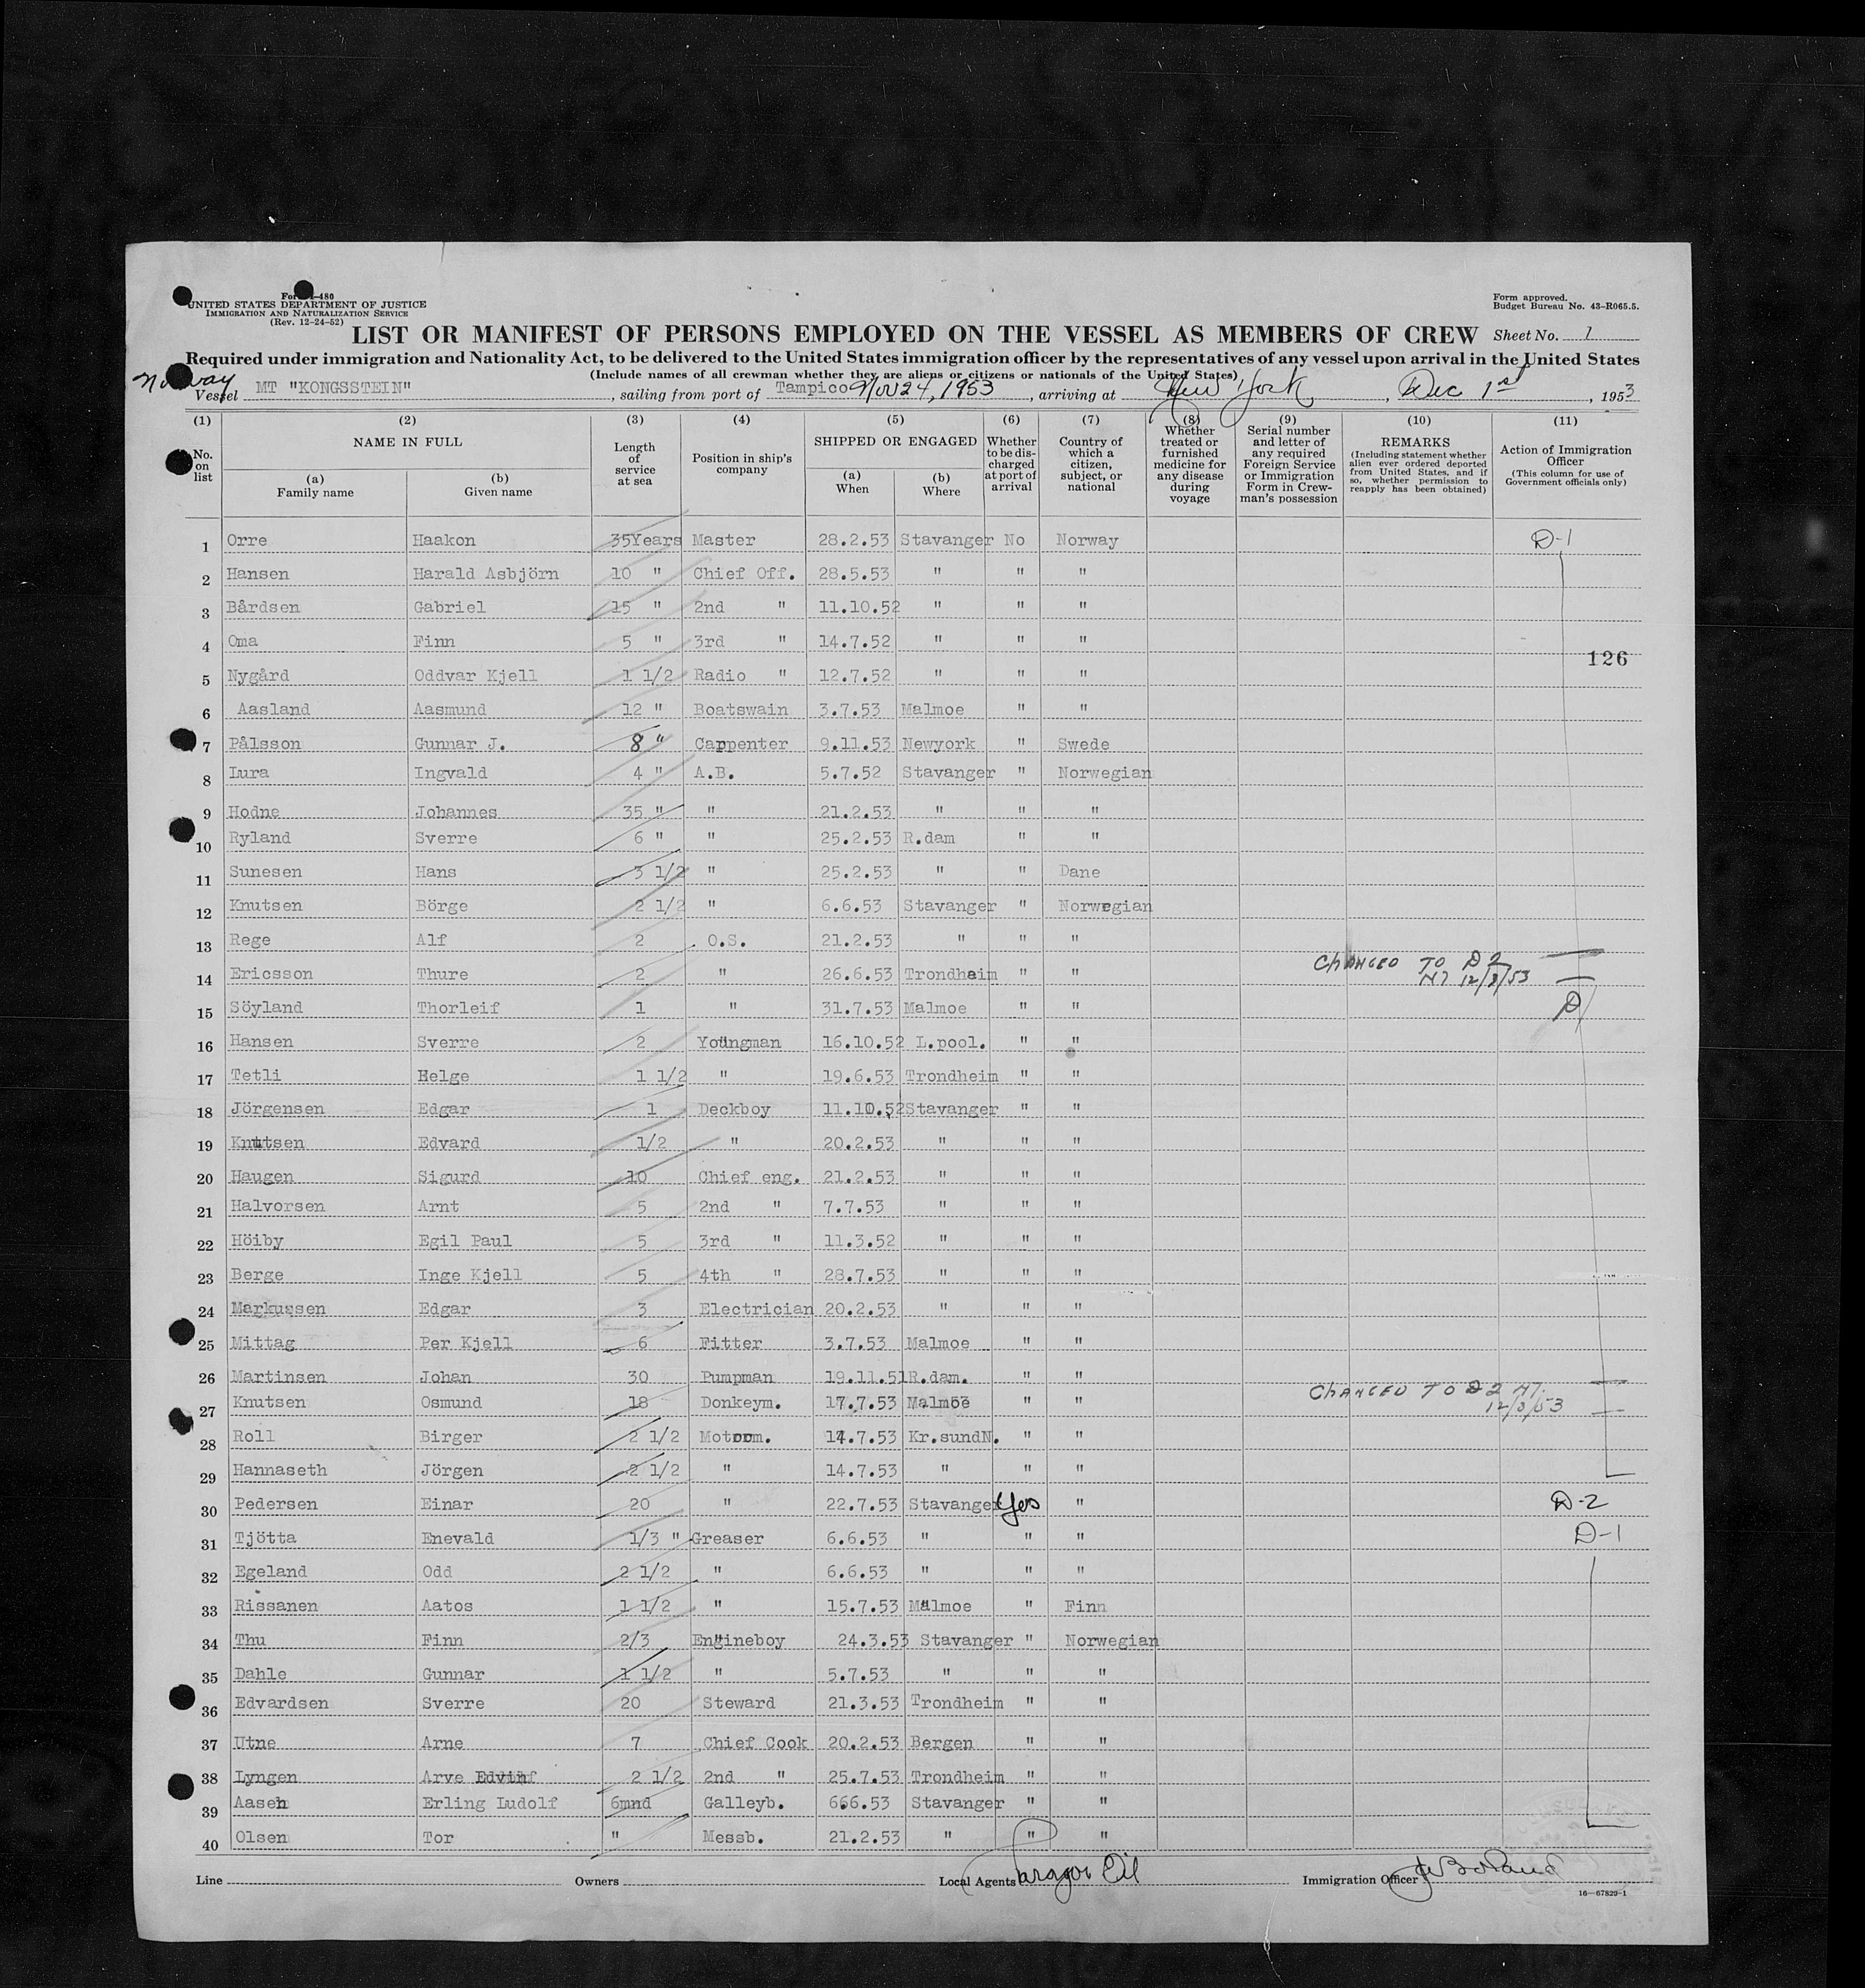 Form I-480
UNITED STATES DEPARTMENT OF JUSTICE
IMMIGRATION AND NATURALIZATION SERVICE
(Rev. 12-24-52)
Form approved.
Budget Bureau No. 43-R065.5.
LIST OR MANIFEST OF PERSONS EMPLOYED ON THE VESSEL AS MEMBERS OF CREW Sheet No. 1
Required under immigration and Nationality Act, to be delivered to the United States immigration officer by the representatives of any vessel upon arrival in the United States
(Include names of all crewman whether they are aliens or citizens or nationals of the United States)
Norway
Vessel MT "KONGSSTEIN", sailing from port of Tampico Nov 24, 1953, arriving at New York, Dec 1st, 1953
(1) (2) (3) (4) (5) (6) (7) (8) (9) (10) (11)
No. on list
NAME IN FULL
(a) Family name
(b) Given name
Length of service at sea
Position in ship's company
SHIPPED OR ENGAGED
(a) When
(b) Where
Whether to be discharged at port of arrival
Country of which a citizen, subject, or national
Whether treated or furnished medicine for any disease during voyage
Serial number and letter of any required Foreign Service or Immigration Form in Crewman's possession
REMARKS
(Including statement whether alien ever ordered deported from United States, and if so, whether permission to reapply has been obtained)
Action of Immigration Officer
(This column for use of Government officials only)
1 Orre Haakon 35Years Master 28.2.53 Stavanger No Norway D-1
2 Hansen Harald Asbjörn 10 " Chief Off. 28.5.53 " " "
3 Bårdsen Gabriel 15 " 2nd " 11.10.52 " " "
4 Oma Finn 5 " 3rd " 14.7.52 " " "
126
5 Nygård Oddvar Kjell 1 1/2 Radio " 12.7.52 " " "
6 Aasland Aasmund 12 " Boatswain 3.7.53 Malmoe " "
7 Pålsson Gunnar J. 8 " Carpenter 9.11.53 Newyork " Swede
8 Lura Ingvald 4 " A.B. 5.7.52 Stavanger " Norwegian
9 Hodne Johannes 35 " " 21.2.53 " " "
10 Ryland Sverre 6 " " 25.2.53 R.dam " "
11 Sunesen Hans 3 1/2 " 25.2.53 " " Dane
12 Knutsen Börge 2 1/2 " 6.6.53 Stavanger " Norwegian
13 Rege Alf 2 O.S. 21.2.53 " " "
14 Ericsson Thure 2 " 26.6.53 Trondheim " " CHANGED TO D2
12/3/53
15 Söyland Thorleif 1 " 31.7.53 Malmoe " " D/
16 Hansen Sverre 2 Youngman 16.10.52 L.pool. " "
17 Tetli Helge 1 1/2 " 19.6.53 Trondheim " "
18 Jörgensen Edgar 1 Deckboy 11.10.52 Stavanger " "
19 Knutsen Edvard 1/2 " 20.2.53 " " "
20 Haugen Sigurd 10 Chief eng. 21.2.53 " " "
21 Halvorsen Arnt 5 2nd " 7.7.53 " " "
22 Höiby Egil Paul 5 3rd " 11.3.52 " " "
23 Berge Inge Kjell 5 4th " 28.7.53 " " "
24 Markussen Edgar 3 Electrician 20.2.53 " " "
25 Mittag Per Kjell 6 Fitter 3.7.53 Malmoe " "
26 Martinsen Johan 30 Pumpman 19.11.51 R.dam. " "
27 Knutsen Osmund 18 Donkeym. 17.7.53 Malmöe " " CHANGED TO D2
12/3/53
28 Roll Birger 2 1/2 Motorm. 14.7.53 Kr.sundN. " "
29 Hannaseth Jörgen 2 1/2 " 14.7.53 " " "
30 Pedersen Einar 20 " 22.7.53 Stavanger Yes " D-2
31 Tjötta Enevald 1/3 " Greaser 6.6.53 " " " D-1
32 Egeland Odd 2 1/2 " 6.6.53 " " "
33 Rissanen Aatos 1 1/2 " 15.7.53 Malmoe " Finn
34 Thu Finn 2/3 Engineboy 24.3.53 Stavanger " Norwegian
35 Dahle Gunnar 1 1/2 " 5.7.53 " " "
36 Edvardsen Sverre 20 Steward 21.3.53 Trondheim " "
37 Utne Arne 7 Chief Cook 20.2.53 Bergen " "
38 Lyngen Arve 2 1/2 2nd " 25.7.53 Trondheim " "
39 Aasen Erling Ludolf 6mnd Galleyb. 666.53 Stavanger " "
40 Olsen Tor " Messb. 21.2.53 " " "
Line Owners Local Agents Paragon Oil Immigration Officer
16—67829-1